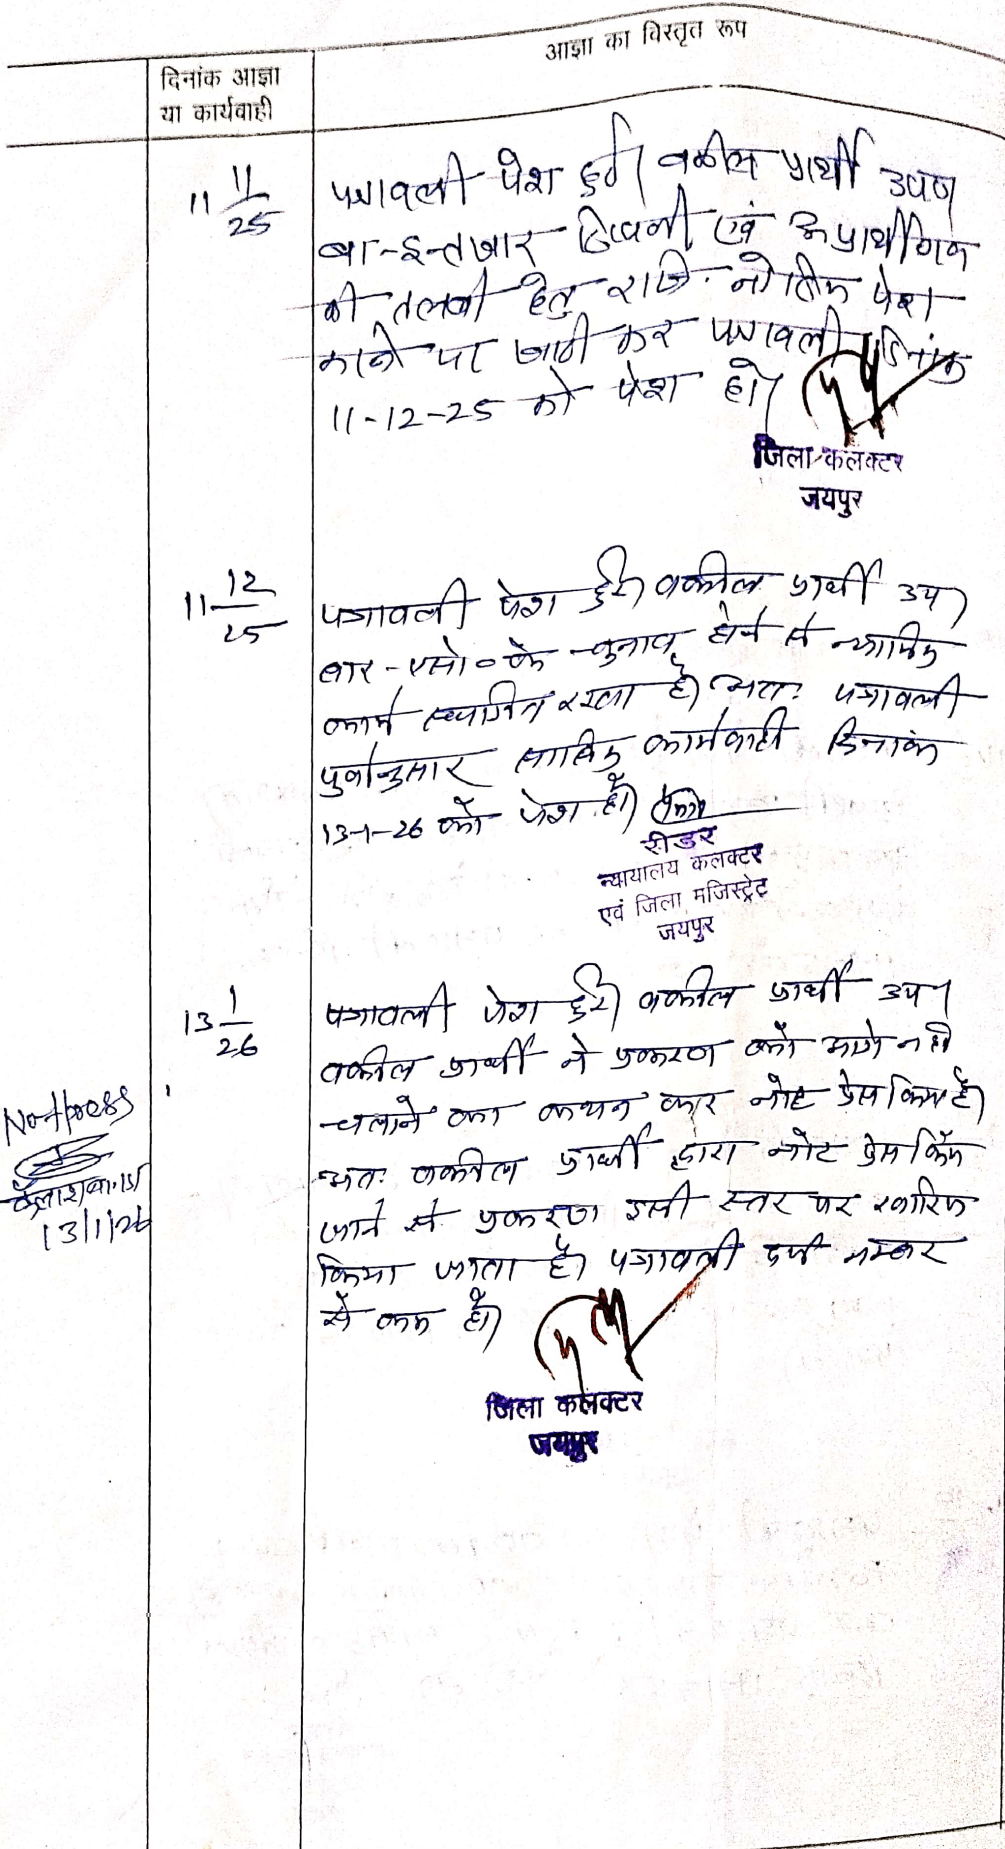 आज्ञा का विस्तृत रूप
दिनांक आज्ञा
या कार्यवाही
11 11/25
पत्रावली पेश हुई। वकील प्रार्थी उपo
बा-इन्तजार टिप्पणी एवं अप्रार्थीगण
की तलबी हेतु राजि. नोटिस पेश
करने पर जारी कर पत्रावली दिनांक
11-12-25 को पेश हो।
जिला कलक्टर
जयपुर
11 12/25
पत्रावली पेश हुई। वकील प्रार्थी उप।
बार-एसो० के चुनाव होने से न्यायिक
कार्य स्थगित रखा है। अतः पत्रावली
पुर्वानुसार साबिक कार्यवाही दिनांक
13-1-26 को पेश हो।
रीडर
न्यायालय कलक्टर
एवं जिला मजिस्ट्रेट
जयपुर
13 1/26
पत्रावली पेश हुई। वकील प्रार्थी उप।
वकील प्रार्थी ने प्रकरण को आगे नही
चलाने का कथन कर नोट प्रेस किया है।
अतः वकील प्रार्थी द्वारा नोट प्रेस किये
जाने से प्रकरण इसी स्तर पर खारिज
किया जाता है। पत्रावली दर्ज नम्बर
से कम हो।
जिला कलक्टर
जयपुर
Not press
13/1/26